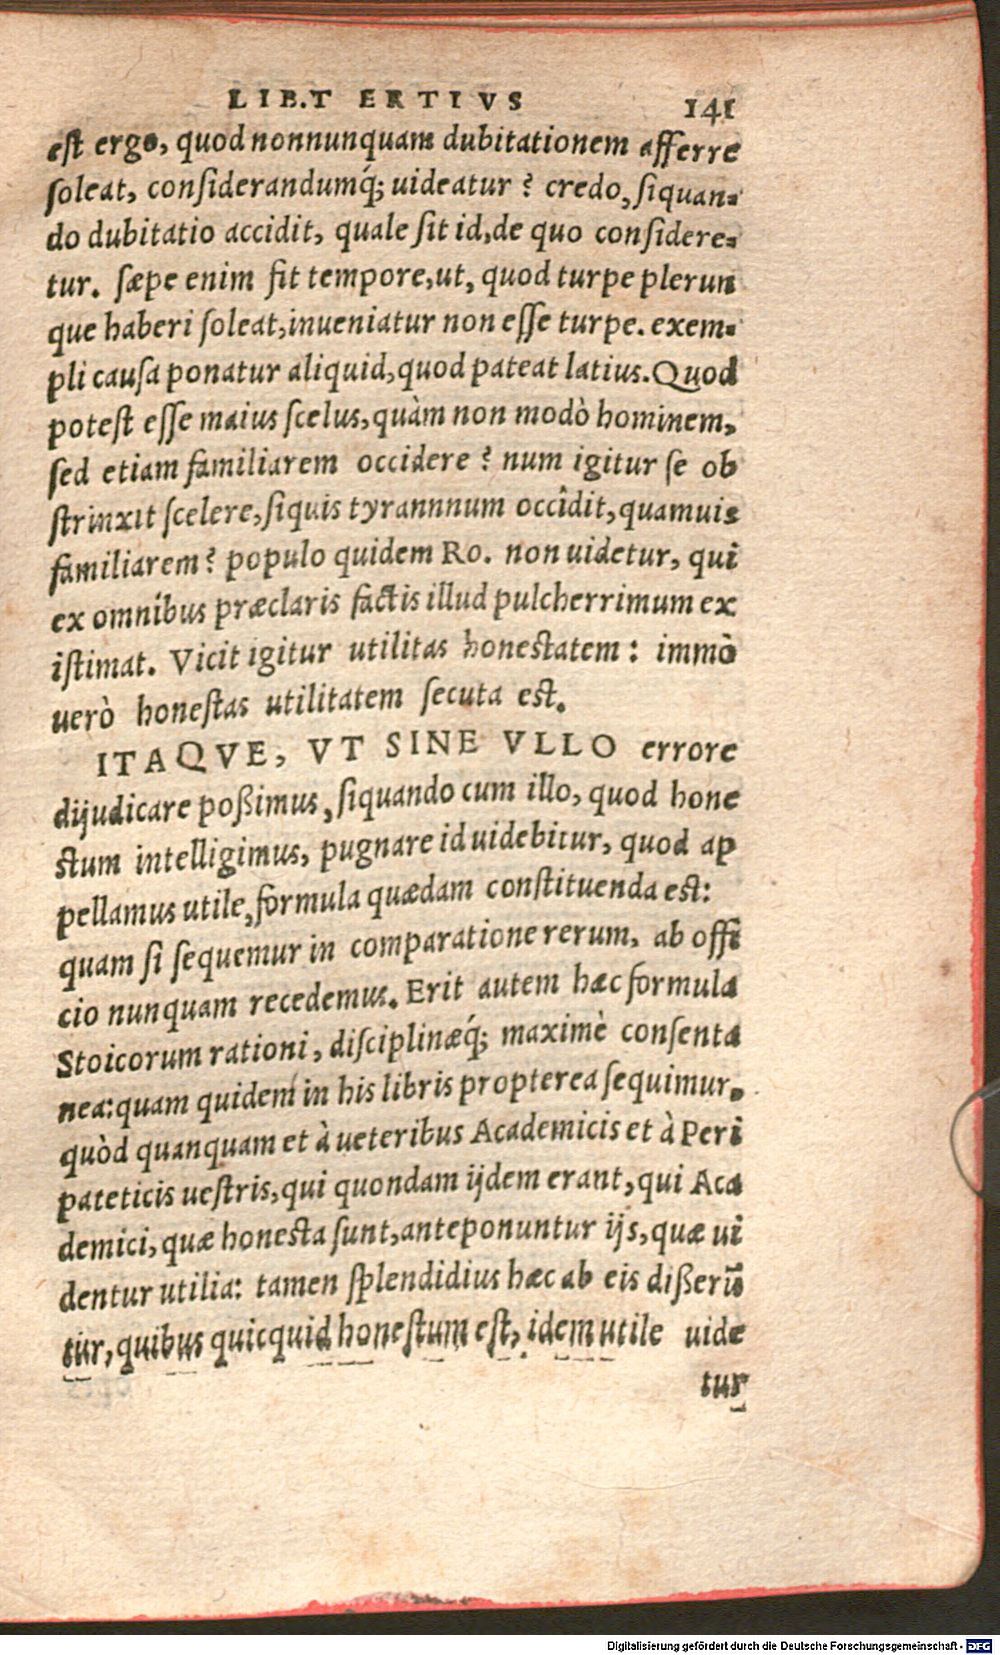 LIB.T ERTIVS 141
est ergo, quod nonnunquam dubitationem afferre
soleat, considerandumq́; uideatur? credo, siquan-
do dubitatio accidit, quale sit id, de quo considere-
tur. sæpe enim fit tempore, ut, quod turpe plerun
que haberi soleat, inueniatur non esse turpe. exem-
pli causa ponatur aliquid, quod pateat latius. Quod
potest esse maius scelus, quàm non modò hominem,
sed etiam familiarem occidere? num igitur se ob
strinxit scelere, siquis tyrannnum occîdit, quamuis
familiarem? populo quidem Ro. non uidetur, qui
ex omnibus præclaris factis illud pulcherrimum ex
istimat. Vicit igitur utilitas honestatem: immò
uerò honestas utilitatem secuta est.
ITAQVE, VT SINE VLLO errore
dijudicare poßimus, siquando cum illo, quod hone
stum intelligimus, pugnare id uidebitur, quod ap
pellamus utile, formula quædam constituenda est:
quam si sequemur in comparatione rerum, ab offi
cio nunquam recedemus. Erit autem hæc formula
Stoicorum rationi, disciplinæq́; maximè consenta
nea: quam quidem in his libris propterea sequimur,
quòd quanquam et à ueteribus Academicis et à Peri
pateticis uestris, qui quondam ijdem erant, qui Aca
demici, quæ honesta sunt, anteponuntur ijs, quæ ui
dentur utilia: tamen splendidius hæc ab eis dißerũ
tur, quibus quicquid honestum est, idem utile uide
tur
Digitalisierung gefördert durch die Deutsche Forschungsgemeinschaft - DFG